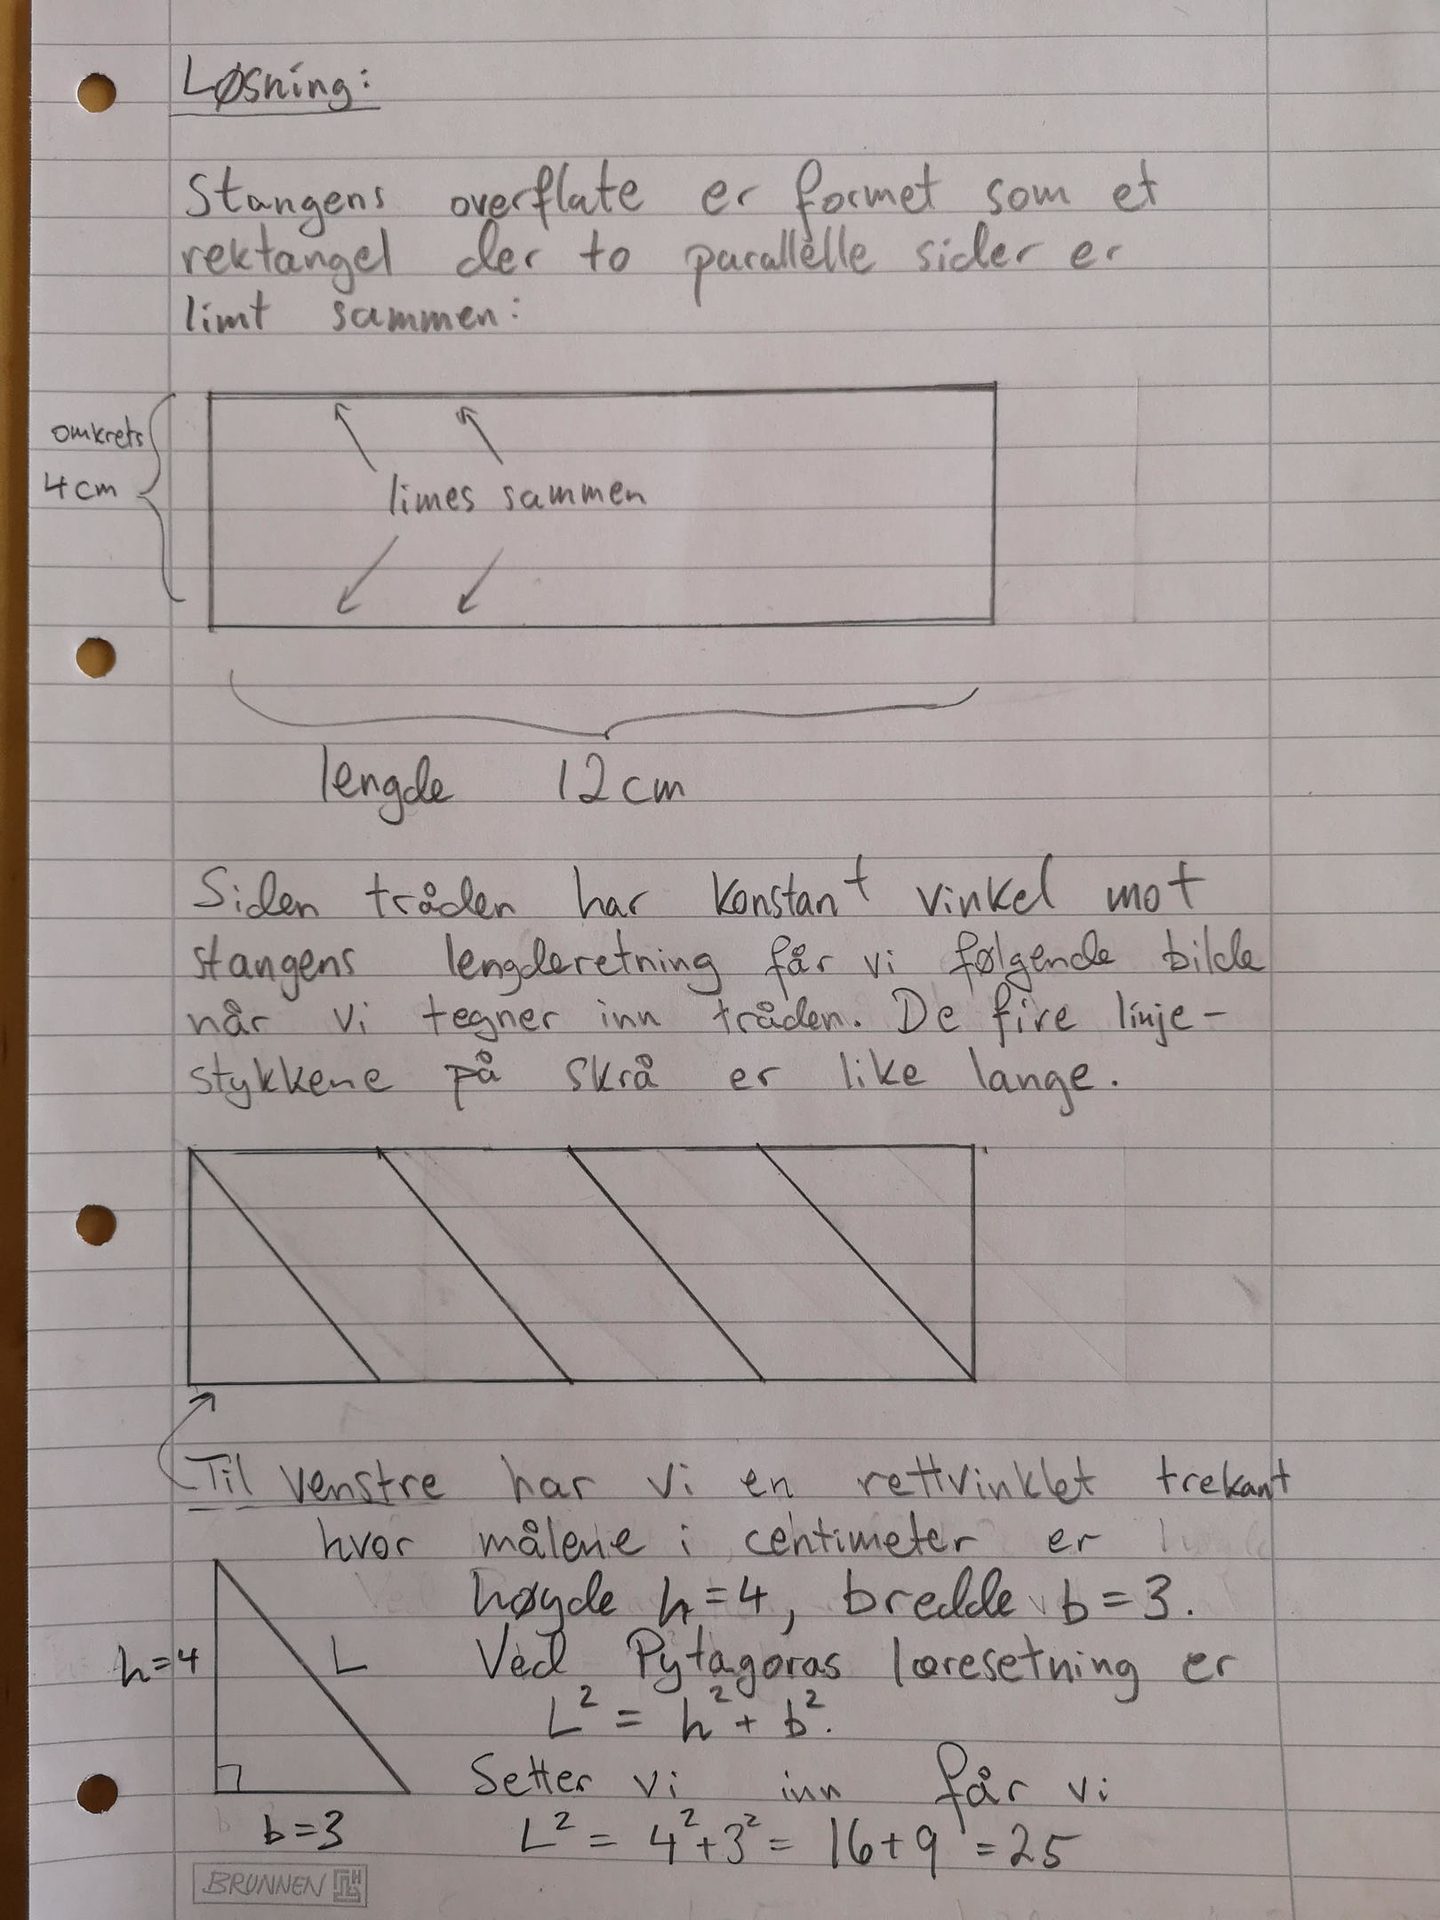 Løsning:
Stangens overflate er formet som et
rektangel der to parallelle sider er
limt sammen:
omkrets
4 cm
limes sammen
lengde 12 cm
Siden tråden har konstant vinkel mot
stangens lengderetning får vi følgende bilde
når vi tegner inn tråden. De fire linje-
stykkene på skrå er like lange.
Til venstre har vi en rettvinklet trekant
hvor målene i centimeter er
høyde h=4, bredde b=3.
h=4
L
Ved Pytagoras læresetning er
L² = h² + b².
Setter vi inn får vi
b=3
L² = 4²+3² = 16+9 = 25
BRUNNEN